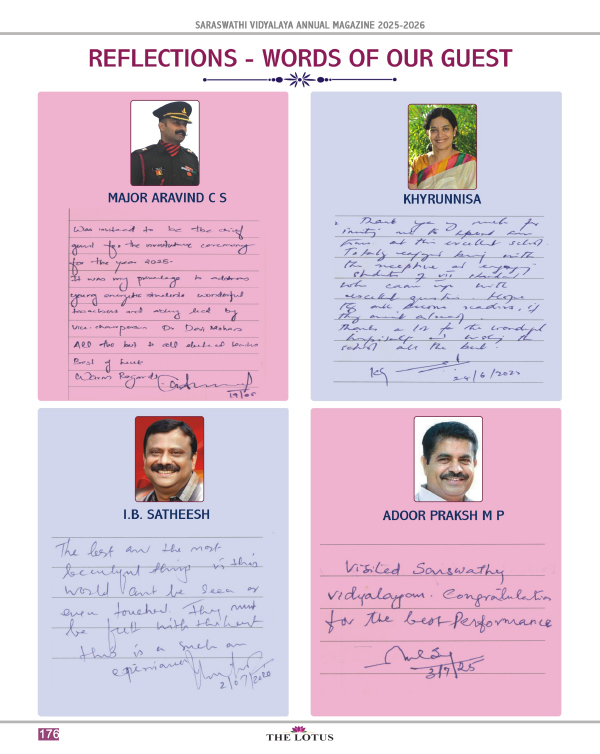 SARASWATHI VIDYALAYA ANNUAL MAGAZINE 2025-2026
REFLECTIONS - WORDS OF OUR GUEST
MAJOR ARAVIND C S
Was invited to be the chief
guest for the investiture ceremony
for the year 2025-
It was my privilege to address
young energetic students wonderful
teachers and ably led by
Vice-chairperson Dr Devi Mohan
All the best to all
Best of luck
Warm Regards
KHYRUNNISA
Thank you so much for
inviting me to spend some
time at this excellent school.
Totally enjoyed being with
the receptive
students of VII
who came up with
excellent
they all become readers, if
they already
Thanks a lot for the wonderful
hospitality
school all the best!
I.B. SATHEESH
The best and the most
beautiful things in this
world can't be seen or
even touched. They must
be felt with the heart
this is a such an
experience
ADOOR PRAKSH M P
Visited Sarswathy
vidyalayam. Congratulation
for the best Performance
3/7/25
176
THE LOTUS